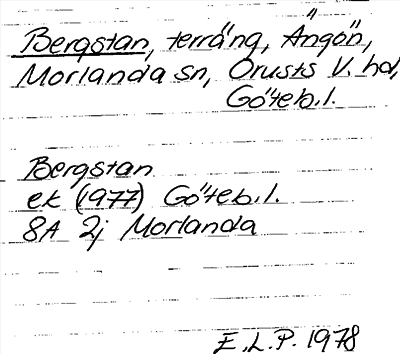 Bergstan, terräng, Ängön,
Morlanda sn, Orusts V. hd,
Göteb.l.
Bergstan
ek (1977) Göteb.l.
8A 2j Morlanda
E.L.P. 1978